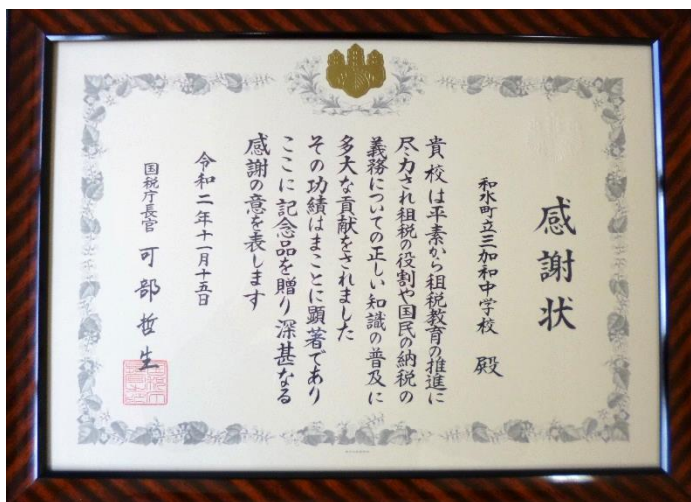 感謝状
和水町立三加和中学校 殿
貴校は平素から租税教育の推進に
尽力され租税の役割や国民の納税の
義務についての正しい知識の普及に
多大な貢献をされました
その功績はまことに顕著であり
ここに記念品を贈り深甚なる
感謝の意を表します
令和二年十一月十五日
国税庁長官 可部哲生